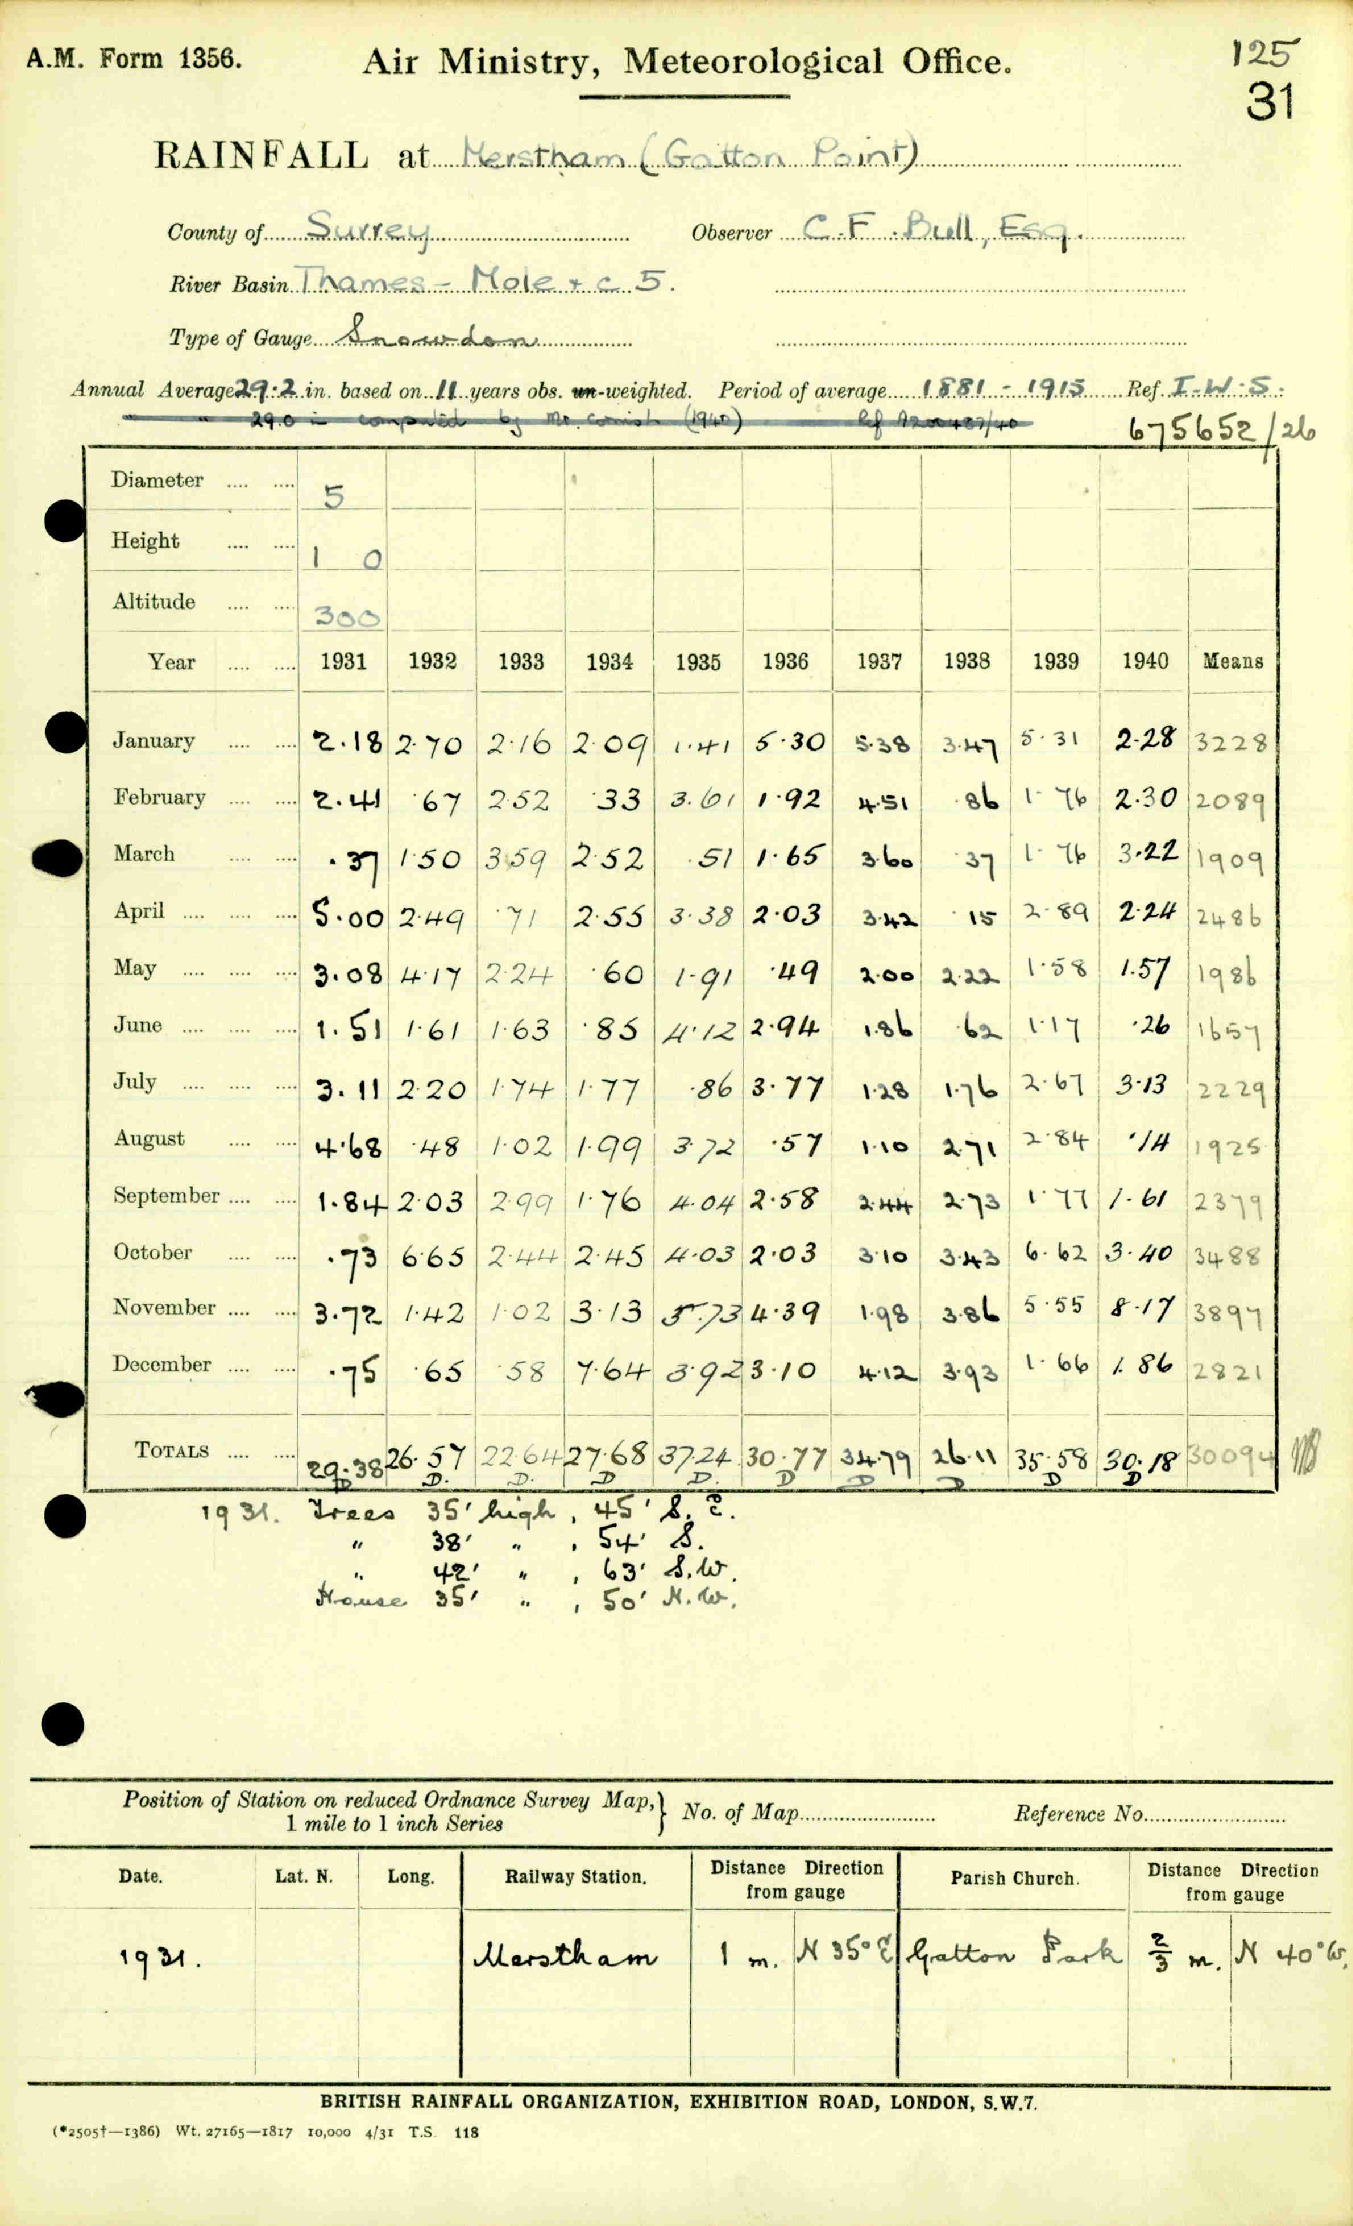 A.M. Form 1356. Air Ministry, Meteorological Office. 125
31
RAINFALL at Merstham (Gatton Point)
County of Surrey Observer C.F. Bull, Esq.
River Basin Thames – Mole & c 5.
Type of Gauge Snowdon
Annual Average 29.2 in. based on 11 years obs. un-weighted. Period of average 1881 - 1915 Ref. I.W.S.
" 29.0 in computed by Mr. (1940) 675652/26
Diameter .... .... 5
Height .... .... 1 0
Altitude .... .... 300
Year .... .... 1931 1932 1933 1934 1935 1936 1937 1938 1939 1940 Means
January .... .... 2.18 2.70 2.16 2.09 1.41 5.30 5.38 3.47 5.31 2.28 3228
February .... .... 2.41 .67 2.52 .33 3.61 1.92 4.51 .86 1.76 2.30 2089
March .... .... .37 1.50 3.59 2.52 .51 1.65 3.60 .37 1.76 3.22 1909
April .... .... .... 5.00 2.49 .71 2.55 3.38 2.03 3.42 .15 2.89 2.24 2486
May .... .... .... 3.08 4.17 2.24 .60 1.91 .49 2.00 2.22 1.58 1.57 1986
June .... .... .... 1.51 1.61 1.63 .85 4.12 2.94 1.86 .62 1.17 .26 1657
July .... .... .... 3.11 2.20 1.74 1.77 .86 3.77 1.28 1.76 2.67 3.13 2229
August .... .... 4.68 .48 1.02 1.99 3.72 .57 1.10 2.71 2.84 .14 1925
September .... .... 1.84 2.03 2.99 1.76 4.04 2.58 2.44 2.73 1.77 1.61 2379
October .... .... .73 6.65 2.44 2.45 4.03 2.03 3.10 3.43 6.62 3.40 3488
November .... .... 3.72 1.42 1.02 3.13 5.73 4.39 1.98 3.86 5.55 8.17 3897
December .... .... .75 .65 .58 7.64 3.92 3.10 4.12 3.93 1.66 1.86 2821
TOTALS .... .... 29.38 26.57 22.64 27.68 37.24 30.77 34.79 26.11 35.58 30.18 30094
D D. D. D D. D D D D D
1931. Trees 35' high, 45' S.E.
" 38' " , 54' S.
" 42' " , 63' S.W.
House 35' " , 50' N.W.
Position of Station on reduced Ordnance Survey Map,} No. of Map Reference No.
1 mile to 1 inch Series
Date. Lat. N. Long. Railway Station. Distance Direction from gauge Parish Church. Distance Direction from gauge
1931. Merstham 1 m. N 35° E Gatton Park 2/3 m. N 40° W.
BRITISH RAINFALL ORGANIZATION, EXHIBITION ROAD, LONDON, S.W.7.
(*2505†—1386) Wt. 27165—1817 10,000 4/31 T.S. 118